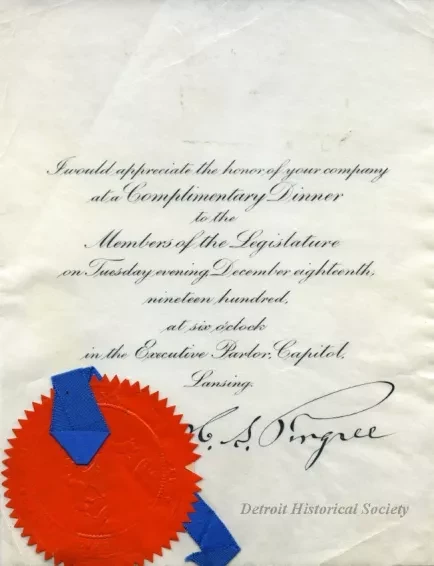 I would appreciate the honor of your company
at a Complimentary Dinner
to the
Members of the Legislature
on Tuesday evening, December eighteenth,
nineteen hundred,
at six o'clock
in the Executive Parlor, Capitol,
Lansing.
H. S. Pingree
Detroit Historical Society